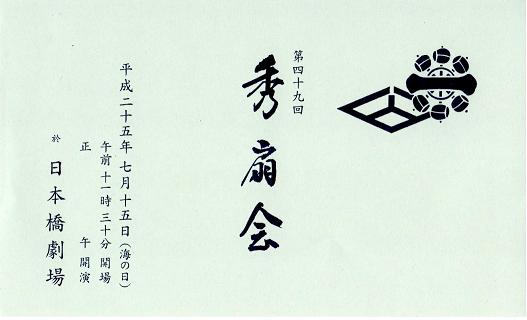 第四十九回
秀扇会
平成二十五年七月十五日(海の日)
午前十一時三十分開場
正午開演
於 日本橋劇場